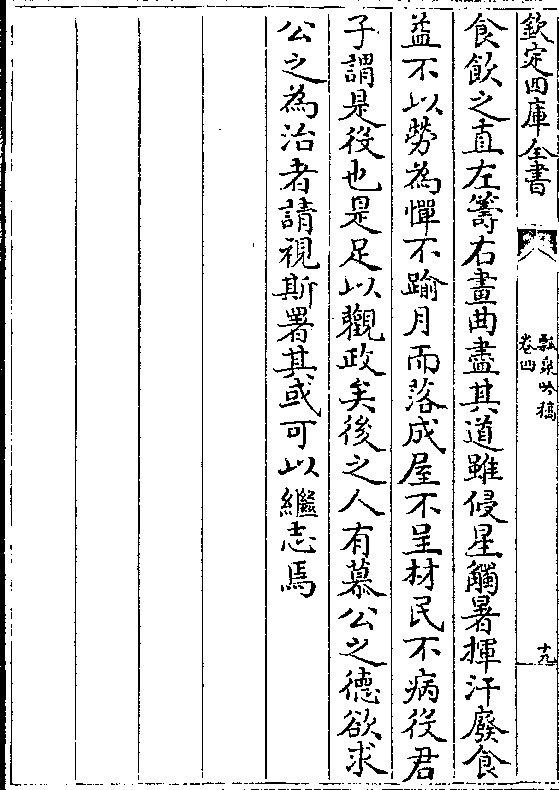 欽定四庫全書
瓢泉吟稿
卷四
十九
食飲之直左籌右畫曲盡其道雖侵星觸暑揮汗廢食
益不以勞為憚不踰月而落成屋不呈材民不病役君
子謂是役也是足以觀政矣後之人有慕公之德欲求
公之為治者請視斯署其或可以繼志焉